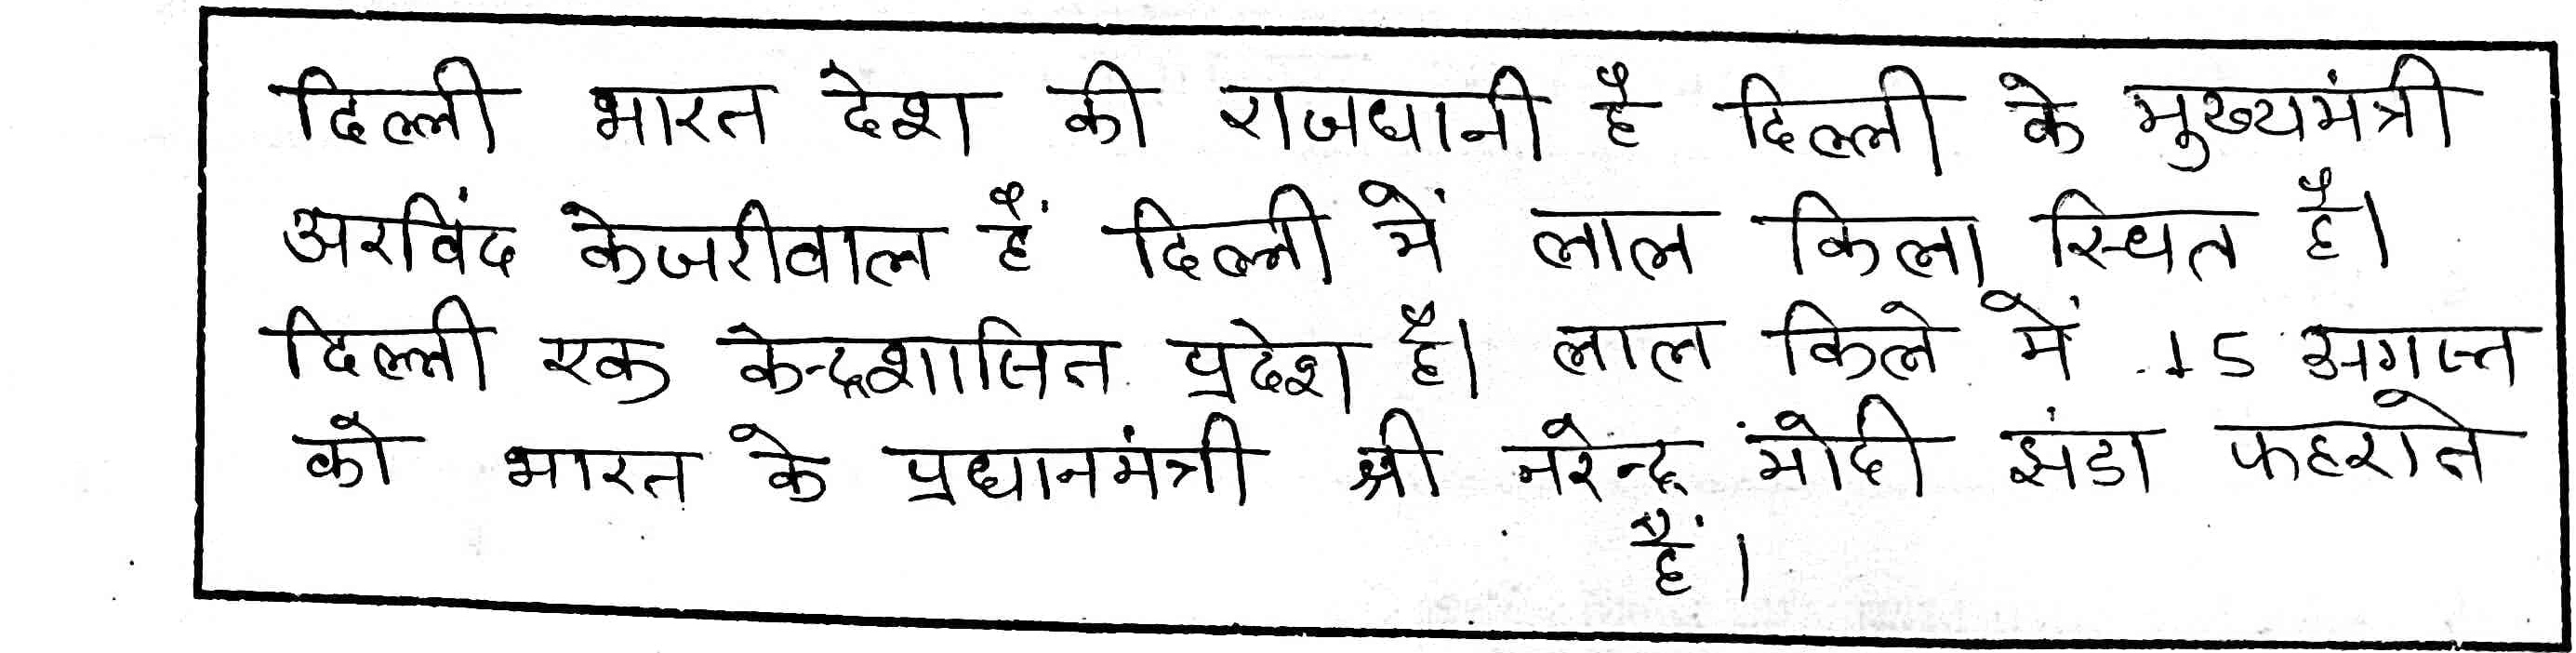 दिल्ली भारत देश की राजधानी है दिल्ली के मुख्यमंत्री
अरविंद केजरीवाल हैं दिल्ली में लाल किला स्थित है।
दिल्ली एक केन्द्रशासित प्रदेश है। लाल किले में 15 अगस्त
को भारत के प्रधानमंत्री श्री नरेन्द्र मोदी झंडा फहराते
हैं।